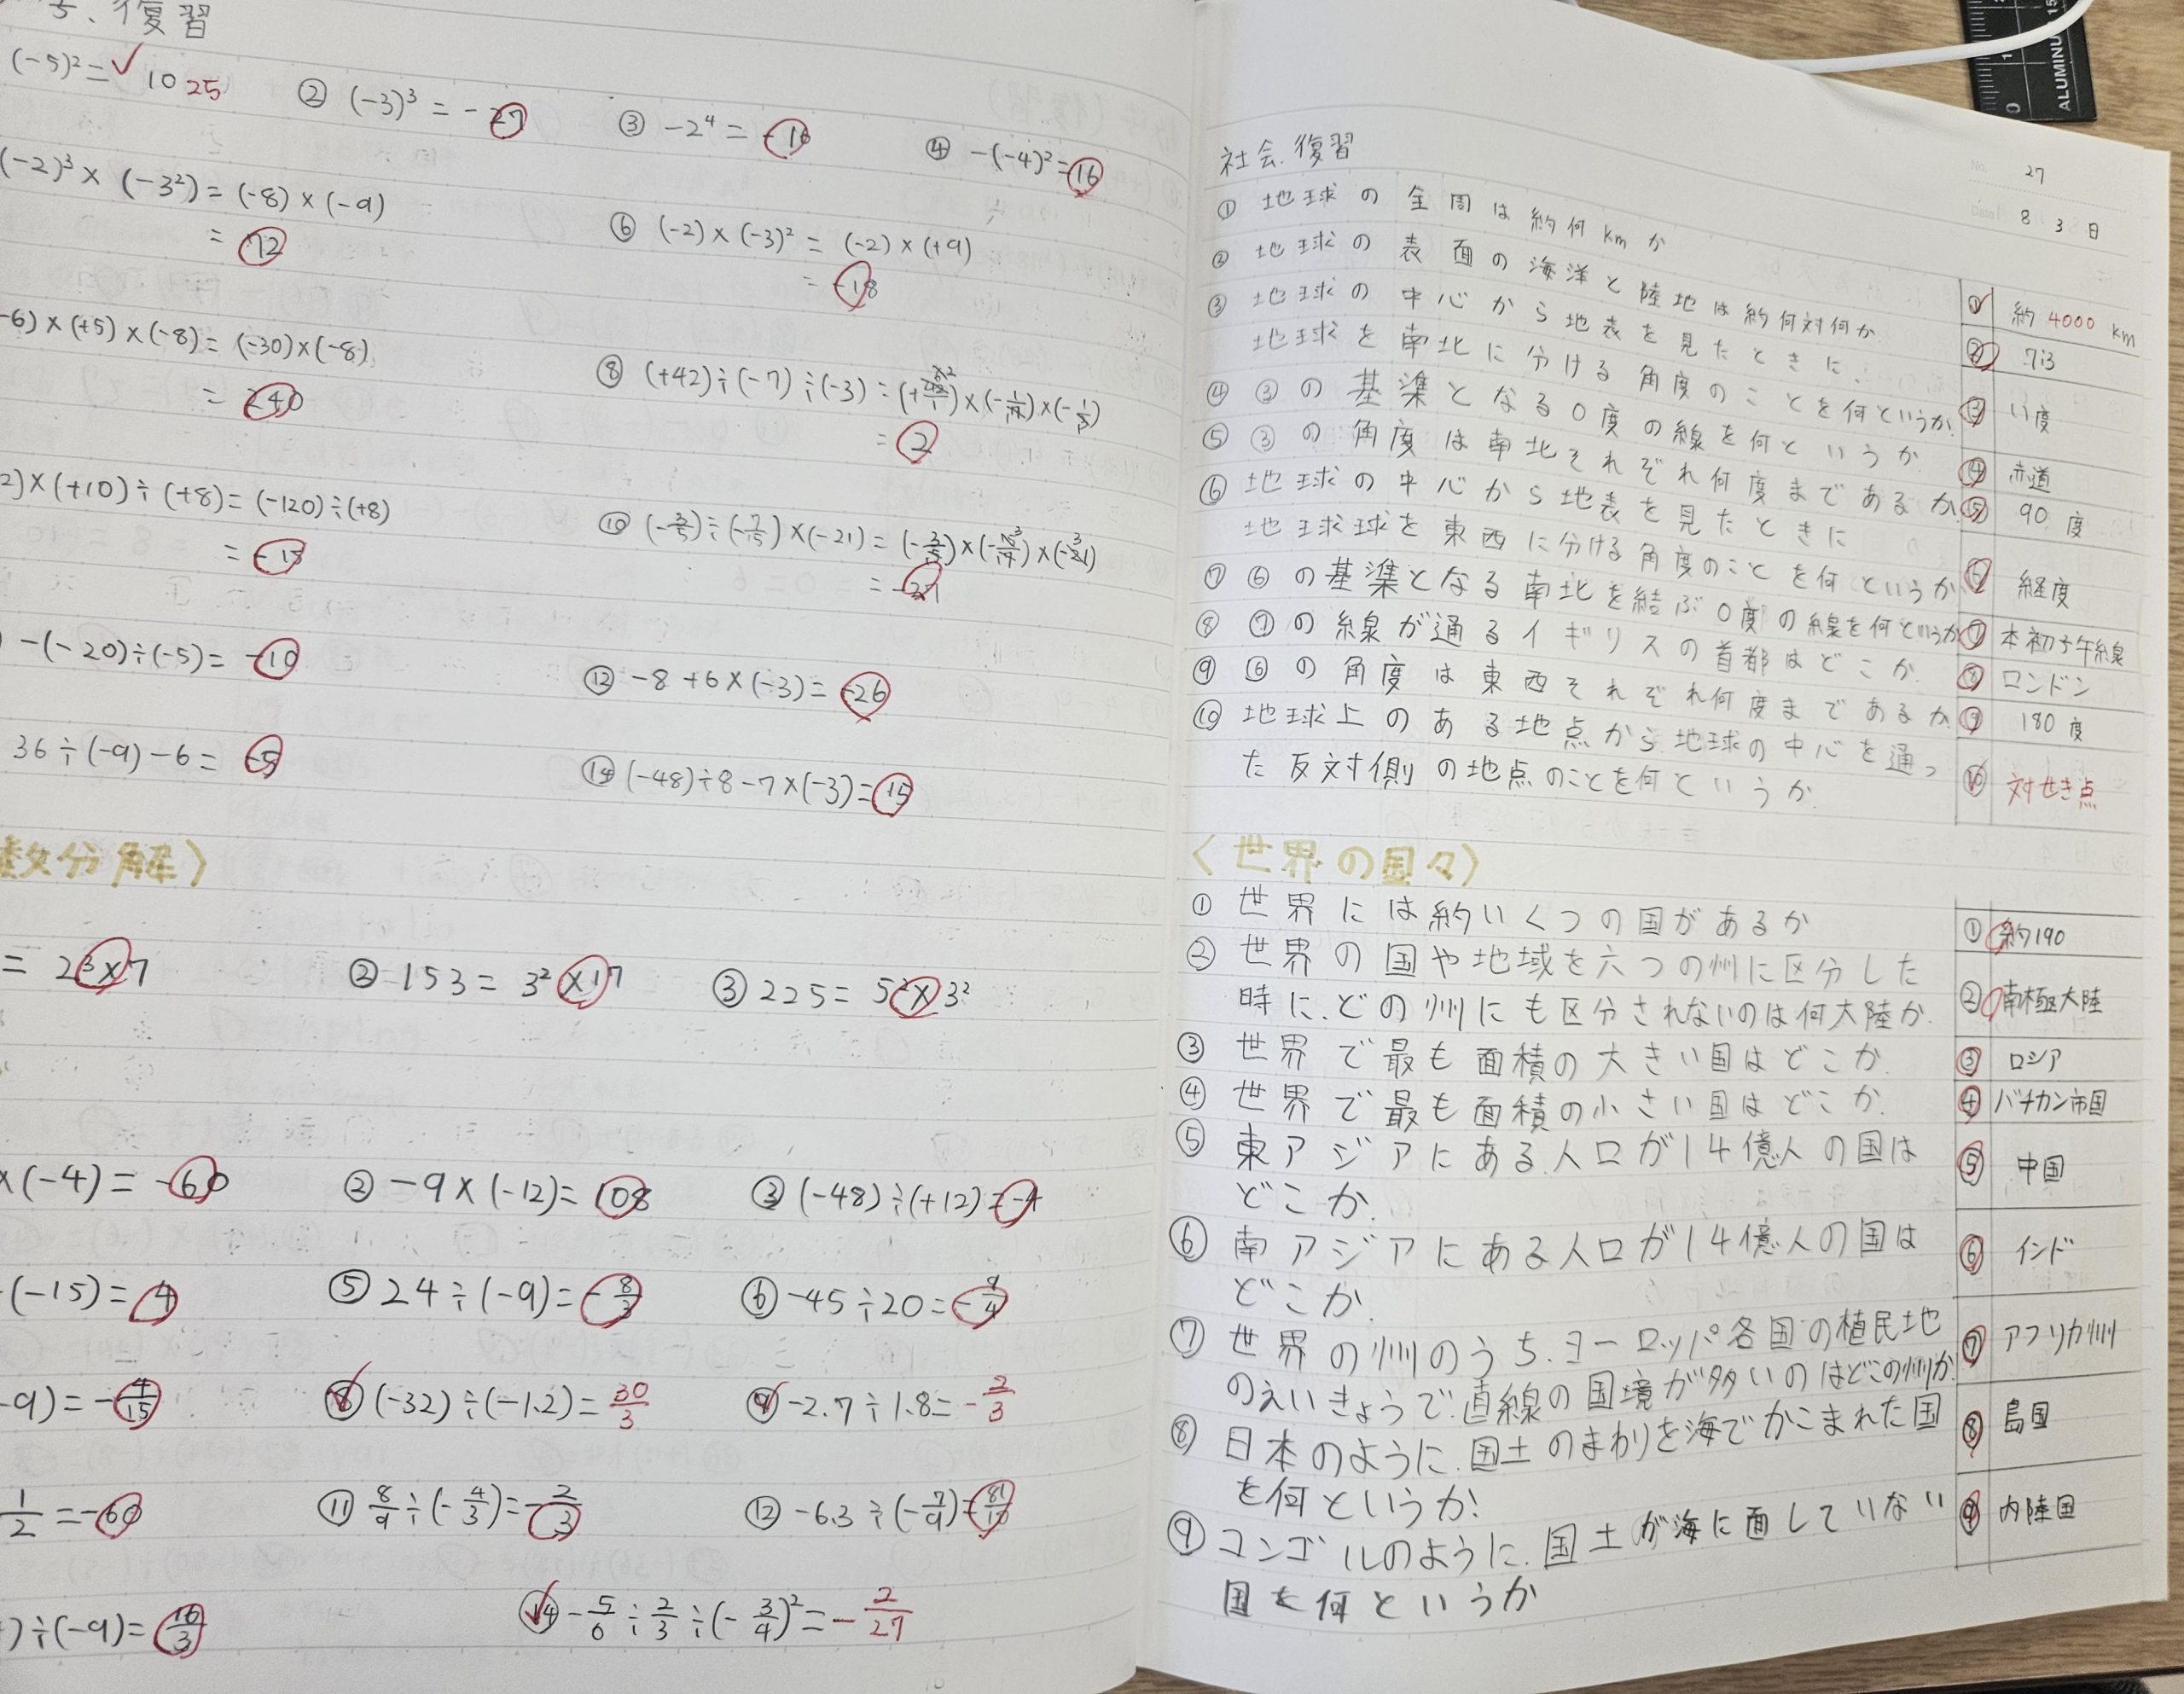 復習
(-5)²= 10 25
② (-3)³ = -27
③ -2⁴ = -16
④ -(-4)²= 16
(-2)³ × (-3²) = (-8) × (-9)
= 72
⑥ (-2) × (-3)² = (-2) × (+9)
= -18
-6) × (+5) × (-8) = (-30)×(-8)
= 240
⑧ (+42)÷(-7)÷(-3) =
= 2
2)×(+10)÷(+8) = (-120)÷(+8)
= -15
⑩ ×(-21) =
= -27
-(-20)÷(-5) = -10
⑫ -8 +6×(-3) = -26
36÷(-9)-6 = -5
⑭ (-48)÷8-7×(-3)=15
数分解〉
= 2³×7
② 153 = 3²×17
③ 225 = 5²×3²
×(-4) = -60
② -9×(-12)= 108
③ (-48)÷(+12)=-4
(-15)= 4
⑤ 24÷(-9)=-8/3
⑥ -45÷20=-9/4
-9)=-4/15
⑧ (-32)÷(-1.2)=30/3
⑨ -2.7÷1.8=-2/3
1/2 =-60
⑪ 8/9÷(-4/3)=-2/3
⑫ -6.3÷(-7/9)=81/10
)÷(-9)=16/3
⑭ -5/6÷2/3÷(-3/4)²=-2/27
ALUMINU
15
0
27
8 3 日
社会.復習
① 地球の全周は約何kmか
② 地球の表面の海洋と陸地は約何対何か
③ 地球の中心から地表を見たときに、
地球を南北に分ける角度のことを何というか.
④ ③の基準となる0度の線を何というか
⑤ ③の角度は南北それぞれ何度まであるか
⑥ 地球の中心から地表を見たときに
地球球を東西に分ける角度のことを何というか
⑦ ⑥の基準となる南北を結ぶ0度の線を何というか
⑧ ⑦の線が通るイギリスの首都はどこか.
⑨ ⑥の角度は東西それぞれ何度まであるか
⑩ 地球上のある地点から地球の中心を通っ
た反対側の地点のことを何というか.
① 約 4000 km
② 7:3
③ い度
④ 赤道
⑤ 90 度
⑥ 経度
⑦ 本初子午線
⑧ ロンドン
⑨ 180 度
⑩ 対せき点
〈世界の国々〉
① 世界には約いくつの国があるか
② 世界の国や地域を六つの州に区分した
時に.どの州にも区分されないのは何大陸か.
③ 世界で最も面積の大きい国はどこか.
④ 世界で最も面積の小さい国はどこか.
⑤ 東アジアにある人口が14億人の国は
どこか.
⑥ 南アジアにある人口が14億人の国は
どこか.
⑦ 世界の州のうち.ヨーロッパ各国の植民地
のえいきょうで.直線の国境が多いのはどこの州か.
⑧ 日本のように.国土のまわりを海でかこまれた国
を何というか!
⑨ コンゴルのように.国土が海に面していない
国を何というか
① 約190
② 南極大陸
③ ロシア
④ バチカン市国
⑤ 中国
⑥ インド
⑦ アフリカ州
⑧ 島国
⑨ 内陸国